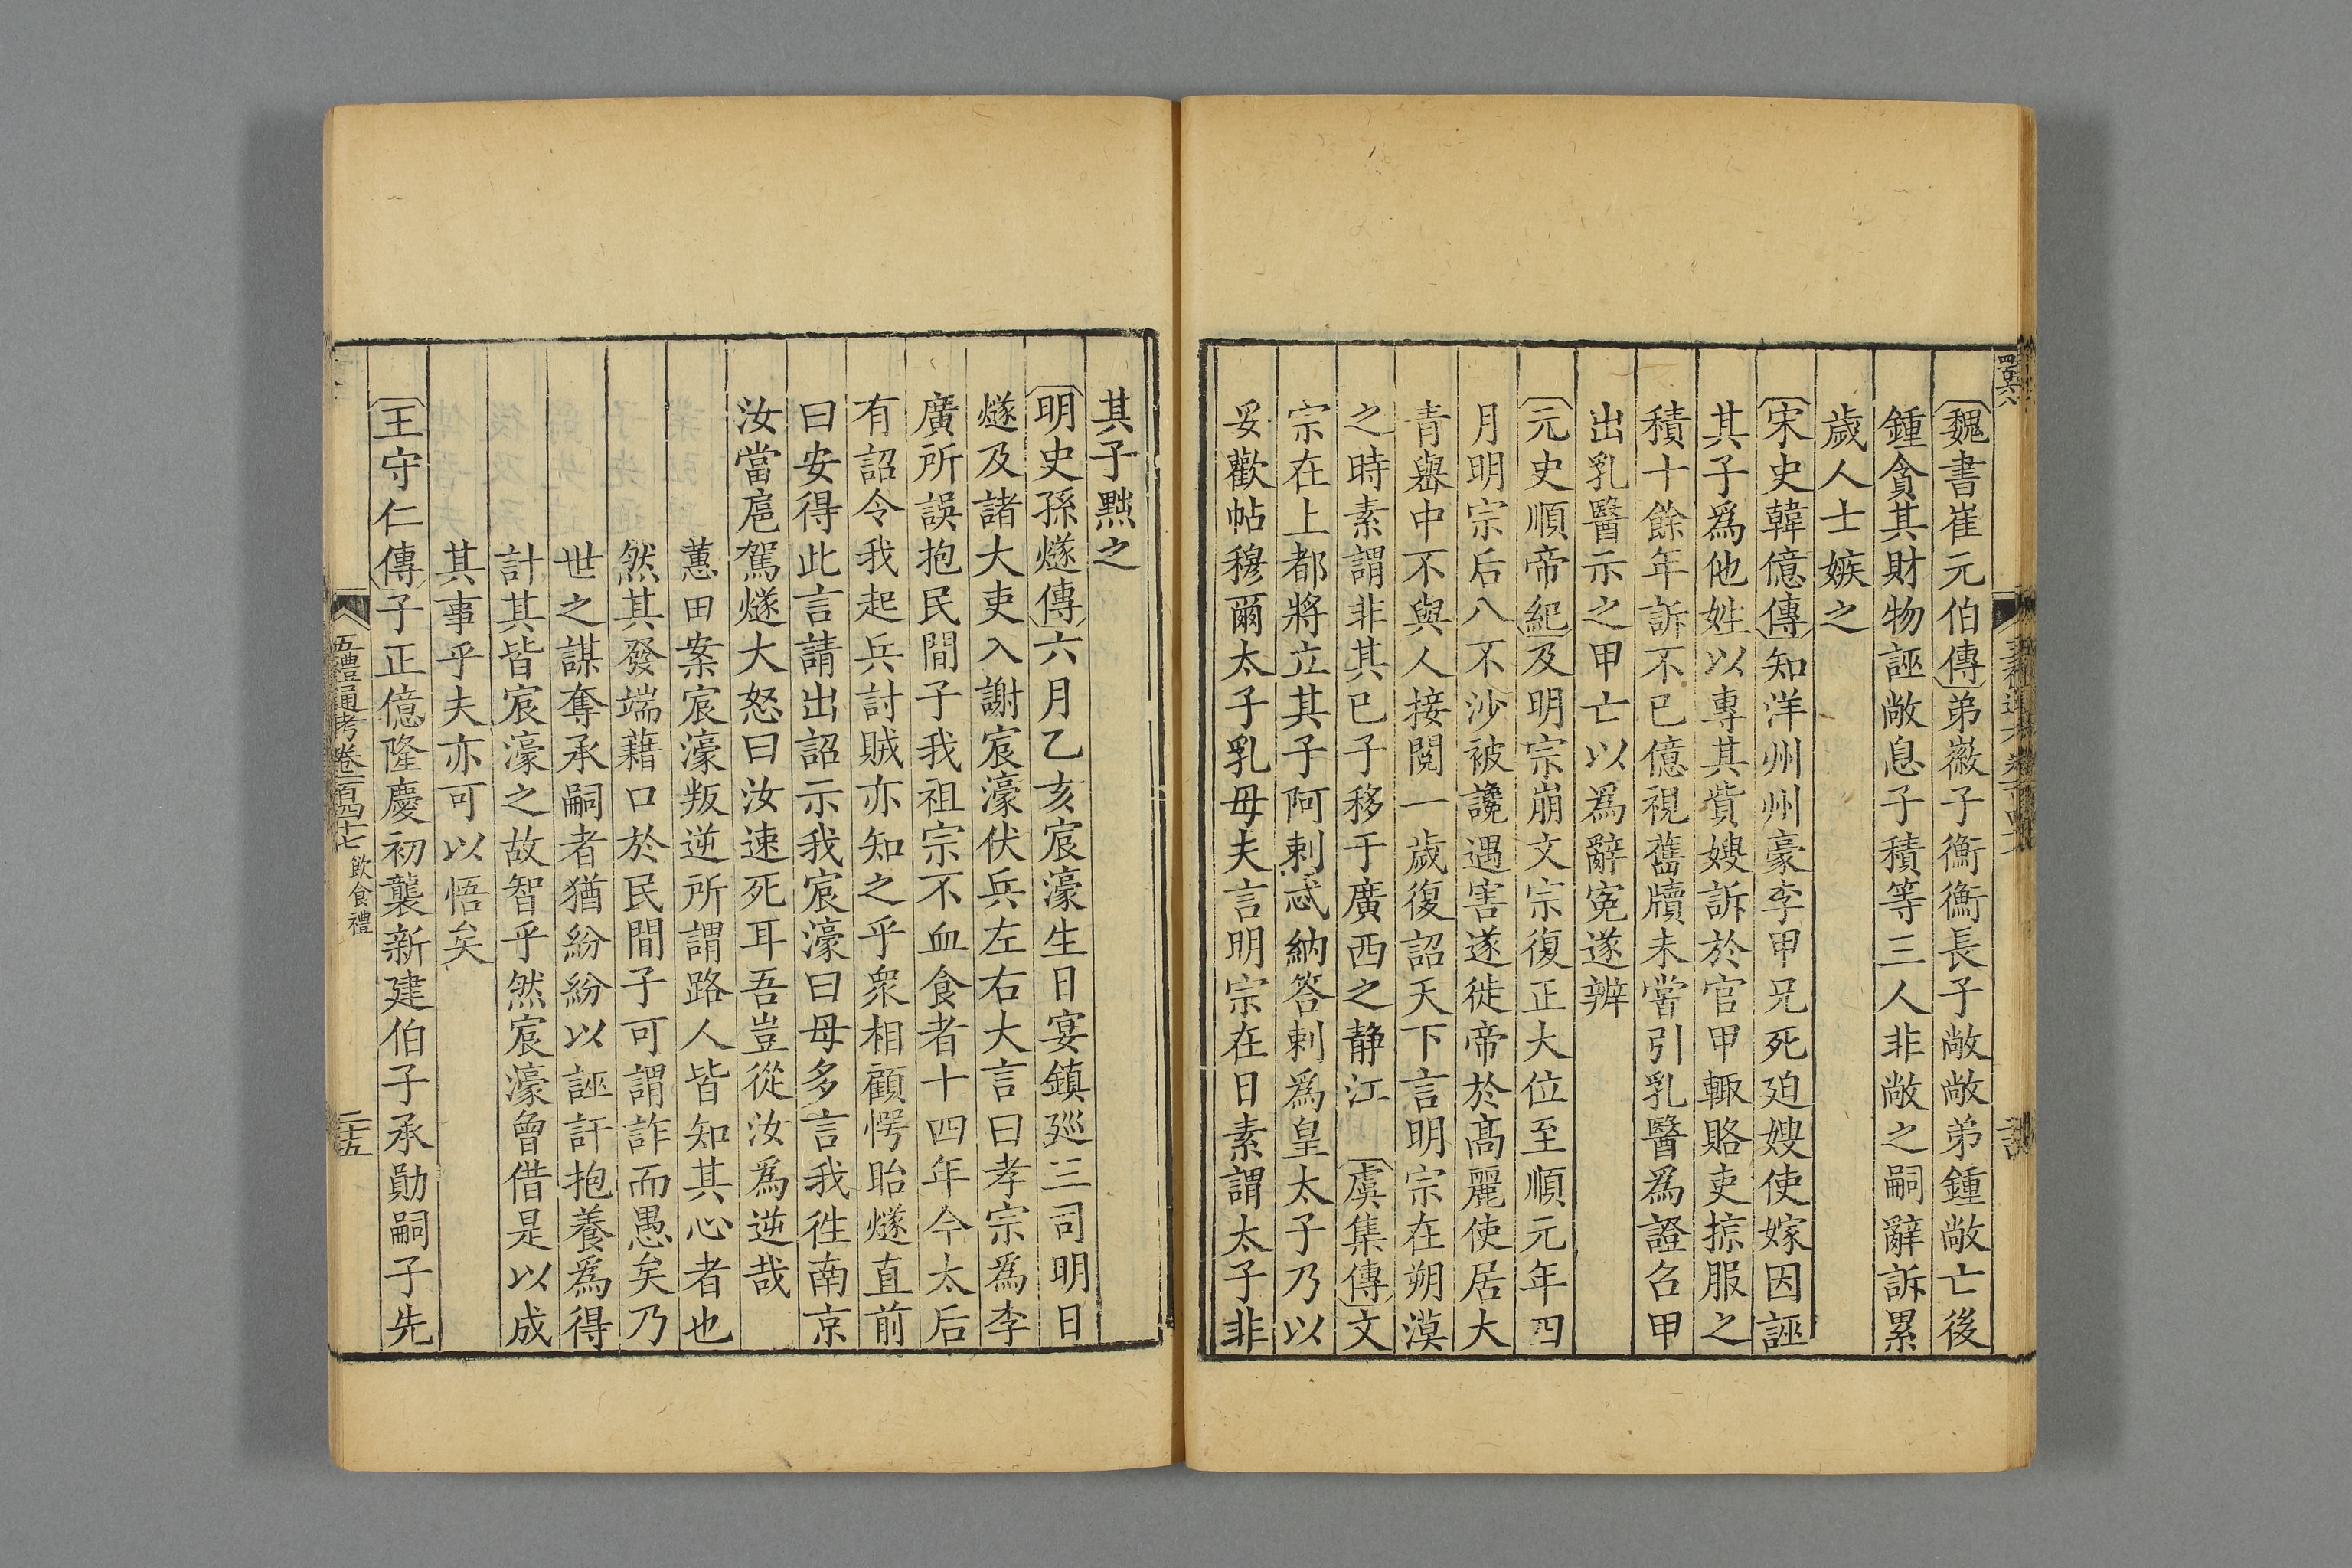 魏書崔元伯傳弟徽子衡衡長子敞敞弟鍾敞亡後
鍾貪其財物誣敞息子積等三人非敞之嗣辭訴累
歲人士嫉之
宋史韓億傳知洋州州豪李甲兄死廹嫂使嫁因誣
其子爲他姓以專其貲嫂訴於官甲輙賂吏掠服之
積十餘年訴不已億視舊牘未嘗引乳醫爲證召甲
出乳醫示之甲亡以爲辭寃遂辨
元史順帝紀及明宗崩文宗復正大位至順元年四
月明宗后八不沙被讒遇害遂徙帝於髙麗使居大
青㠘中不與人接閱一歲復詔天下言明宗在朔漠
之時素謂非其已子移于廣西之静江 虞集傳文
宗在上都將立其子阿剌忒納答剌爲皇太子乃以
妥歡帖穆爾太子乳母夫言明宗在日素謂太子非
其子黜之
明史孫燧傳六月乙亥宸濠生日宴鎮廵三司明日
燧及諸大吏入謝宸濠伏兵左右大言曰孝宗爲李
廣所誤抱民間子我祖宗不血食者十四年今太后
有詔令我起兵討賊亦知之乎衆相顧愕眙燧直前
曰安得此言請出詔示我宸濠曰母多言我徃南京
汝當扈駕燧大怒曰汝速死耳吾豈從汝爲逆哉
蕙田案宸濠叛逆所謂路人皆知其心者也
然其發端藉口於民間子可謂詐而愚矣乃
世之謀奪承嗣者猶紛紛以誣訐抱養爲得
計其皆宸濠之故智乎然宸濠曾借是以成
其事乎夫亦可以悟矣
王守仁傳子正億隆慶初襲新建伯子承勛嗣子先
五禮通考卷一百四十七 飲食禮 二十五